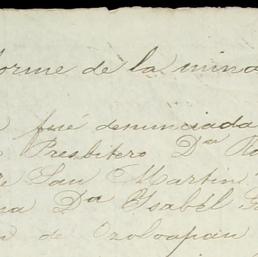 forme de la mina
fué denunciada
Presbitero Dn
San Martin
Da Ysabél
de Ozoloapan